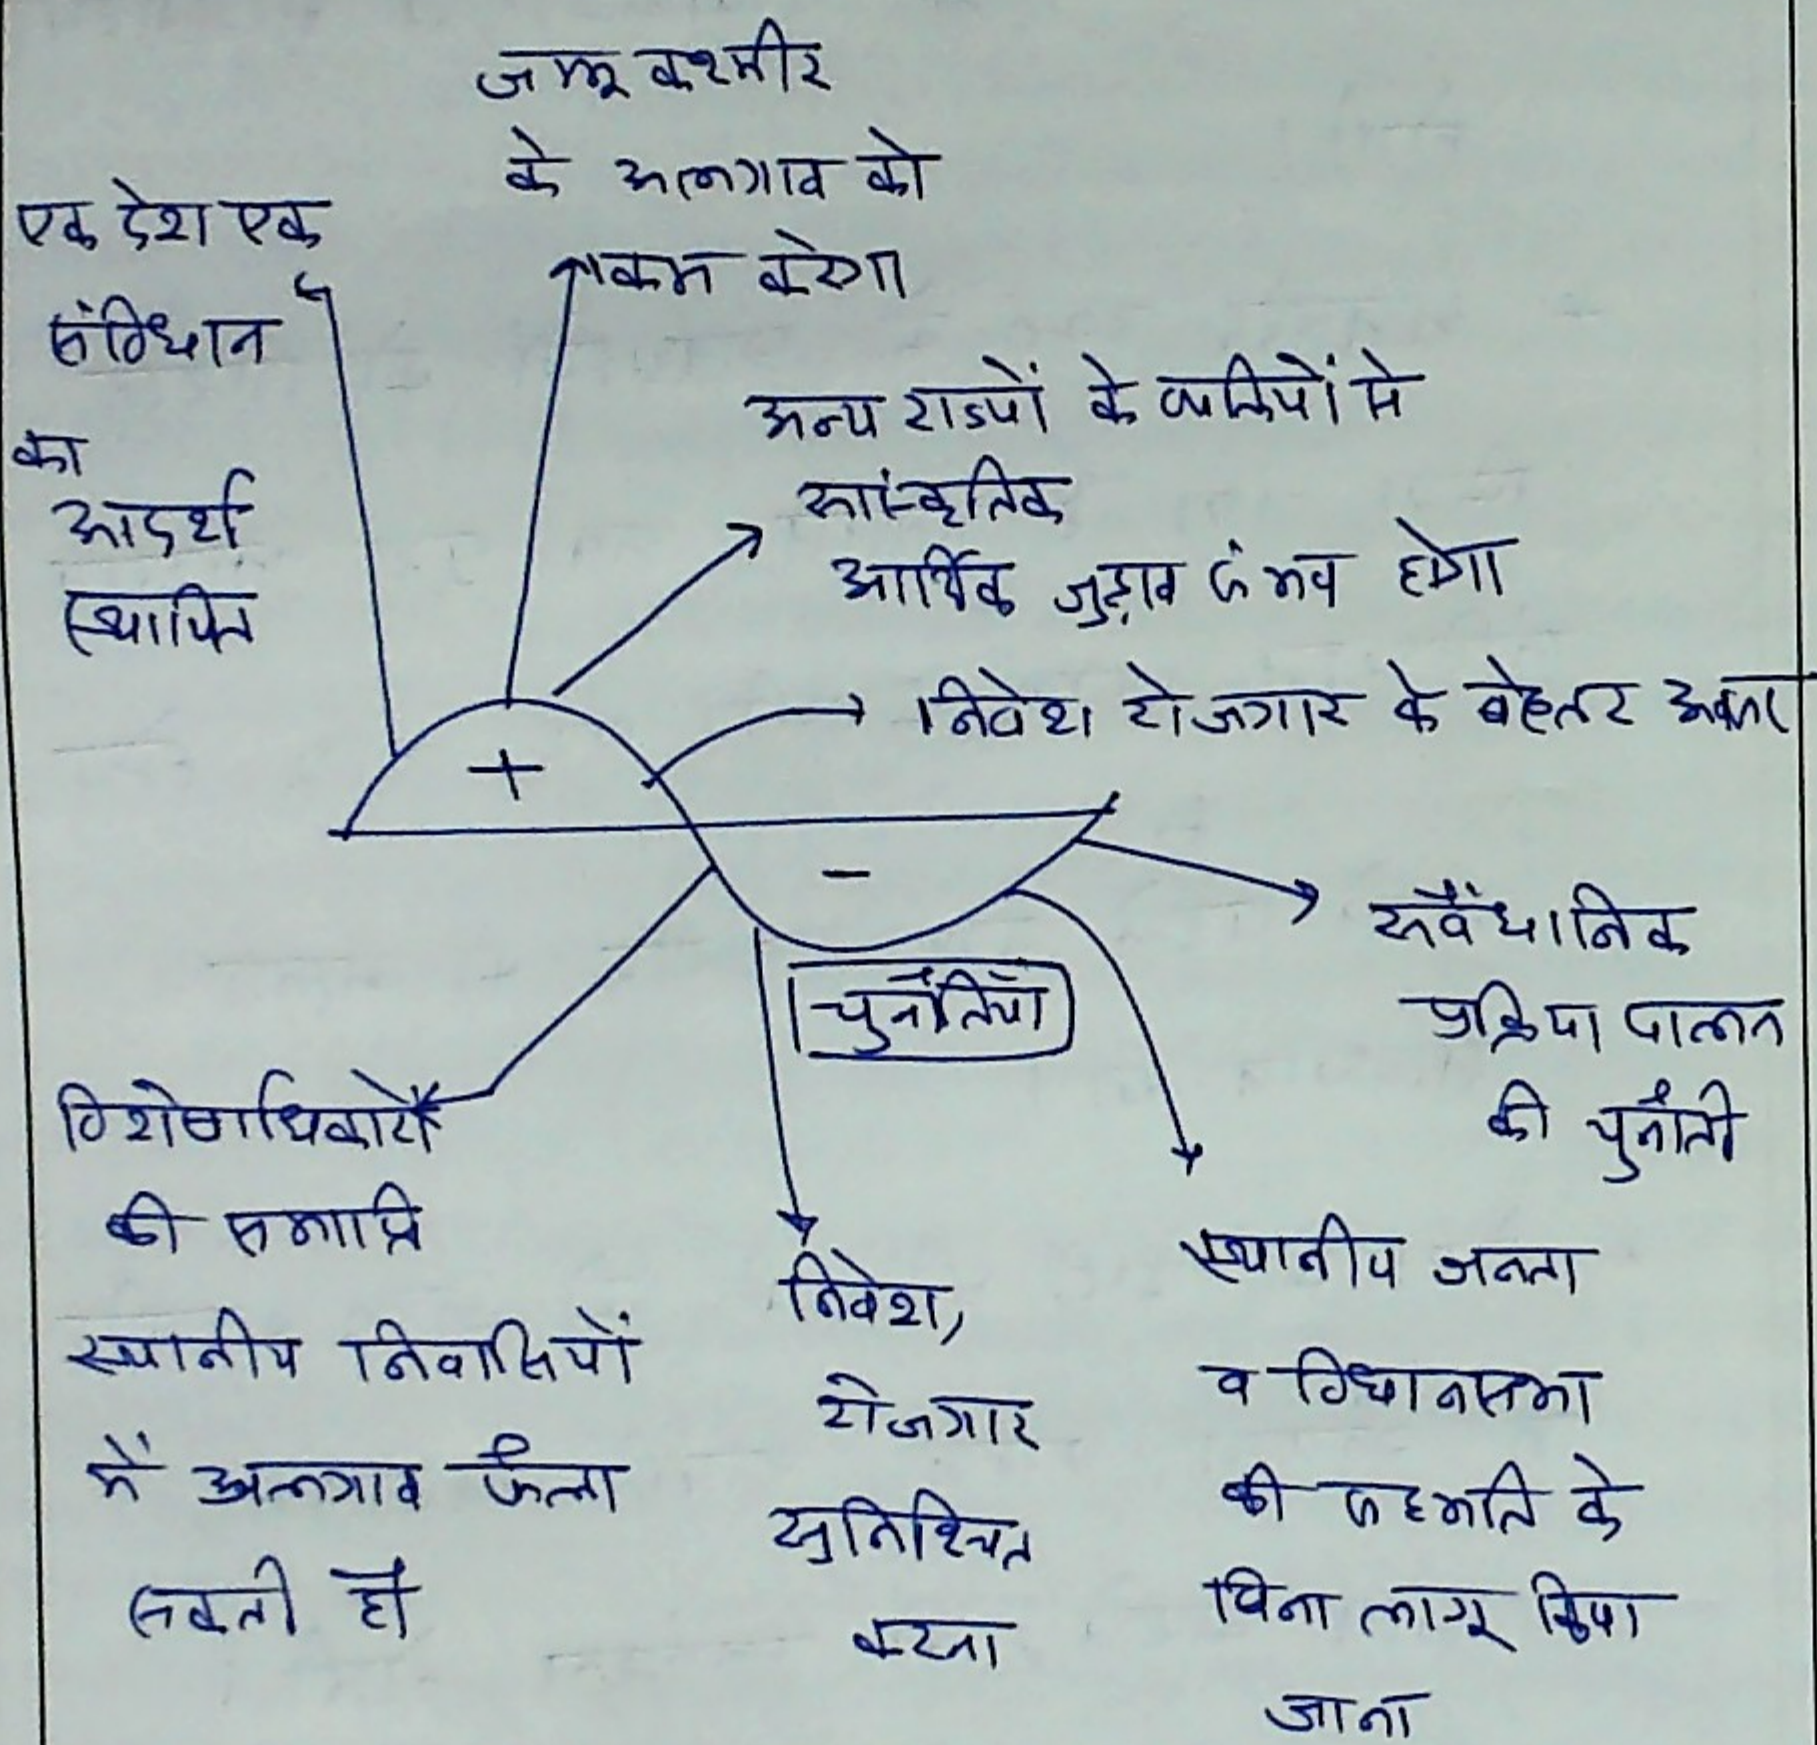 जम्मू कश्मीर
के अलगाव को
कम करेगा
एक देश एक
संविधान
का
आदर्श
स्थापित
अन्य राज्यों के व्यक्तियों से
सांस्कृतिक
आर्थिक जुड़ाव संभव होगा
निवेश रोजगार के बेहतर अवसर
+
-
चुनौतियां
संवैधानिक
प्रक्रिया पालन
की चुनौती
विशेषाधिकारों
की समाप्ति
स्थानीय निवासियों
में अलगाव फैला
सकती है
निवेश,
रोजगार
सुनिश्चित
करना
स्थानीय जनता
व विधानसभा
की सहमति के
बिना लागू किया
जाना